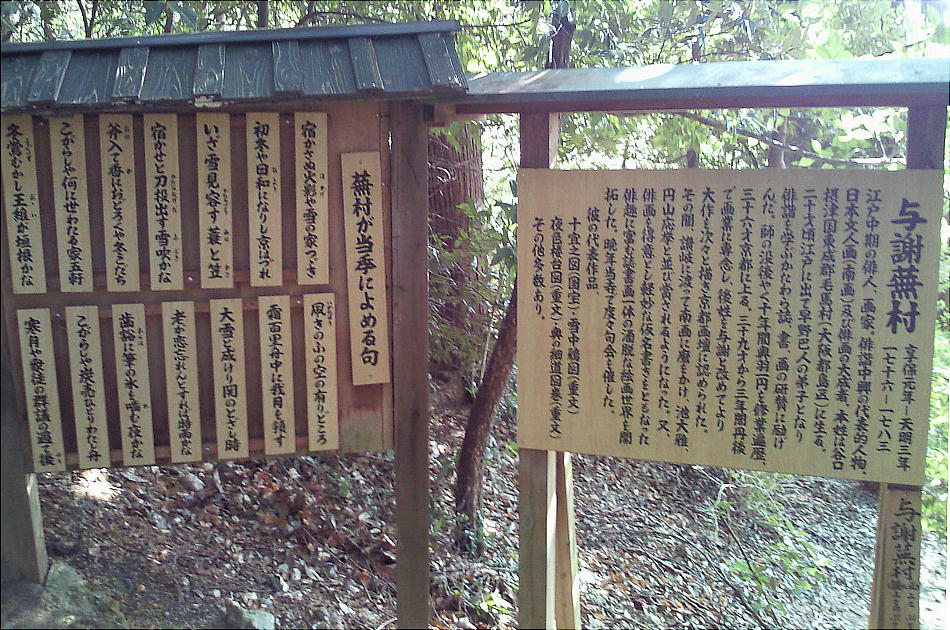 与謝蕪村
享保元年―天明三年
一七十六―一七八三
江戸中期の俳人、画家。俳諧中興の代表的人物、
日本文人画(南画)及び俳画の大成者、本姓は谷口
摂津国東成郡毛馬村(大阪都島区)に生る。
二十才頃江戸に出て早野巴人の弟子となり
俳諧を学ぶかたわら誌、書、画の研賛に励け
んだ。師の没後やく十年間奥羽一円を修業遍歴、
三十六才京都に上る。三十九才から三年間丹後
で画業に専念し、後姓を与謝と改めてより
大作を次々と描き京都画壇に認められた。
その間、讃岐に渡って南画に磨をかけ、池大雅、
円山応挙と並び賞されるようになった。又、
俳画を得意とし軽妙な仮名書きをともなった
俳趣に富む詩書画一体の洒脱な絵画世界を開
拓した。晩年当寺で度々句会を催した。
彼の代表作品
十宜之図(国宝)・雪中鴉図(重文)
夜色楼台図(重文)・奥の細道図巻(重文)
その他多数あり。
蕪村が当季によめる句
宿かさぬ火影や雪の家つづき
初冬や日和になりし京はづれ
いざ雪見容す蓑と笠
宿かせと刀投出す雪吹かな
斧入て香におどろくや冬こだち
こがらしや何に世わたる家五軒
冬鶯むかし王維が垣根かな
凩きのふの空の有りどころ
霜百里舟中に我月を領す
大雪と成けり関のとざし時
老が恋忘れんとすれば時雨かな
歯豁に筆の氷を噛む夜かな
こがらしや炭売ひとりわたし舟
寒月や衆徒の群議の過て後
与謝蕪村